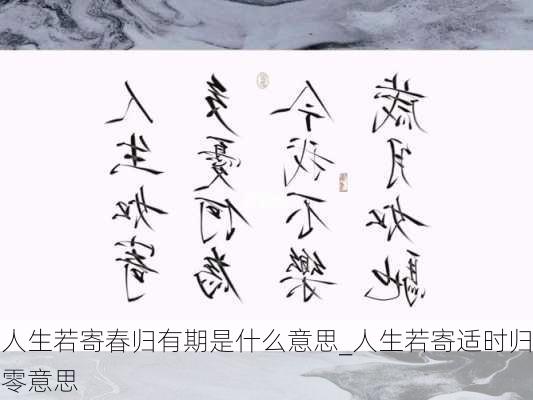 人生如寄
多憂何為
今我不樂
歲月如馳
人生若寄春归有期是什么意思_人生若寄适时归
零意思